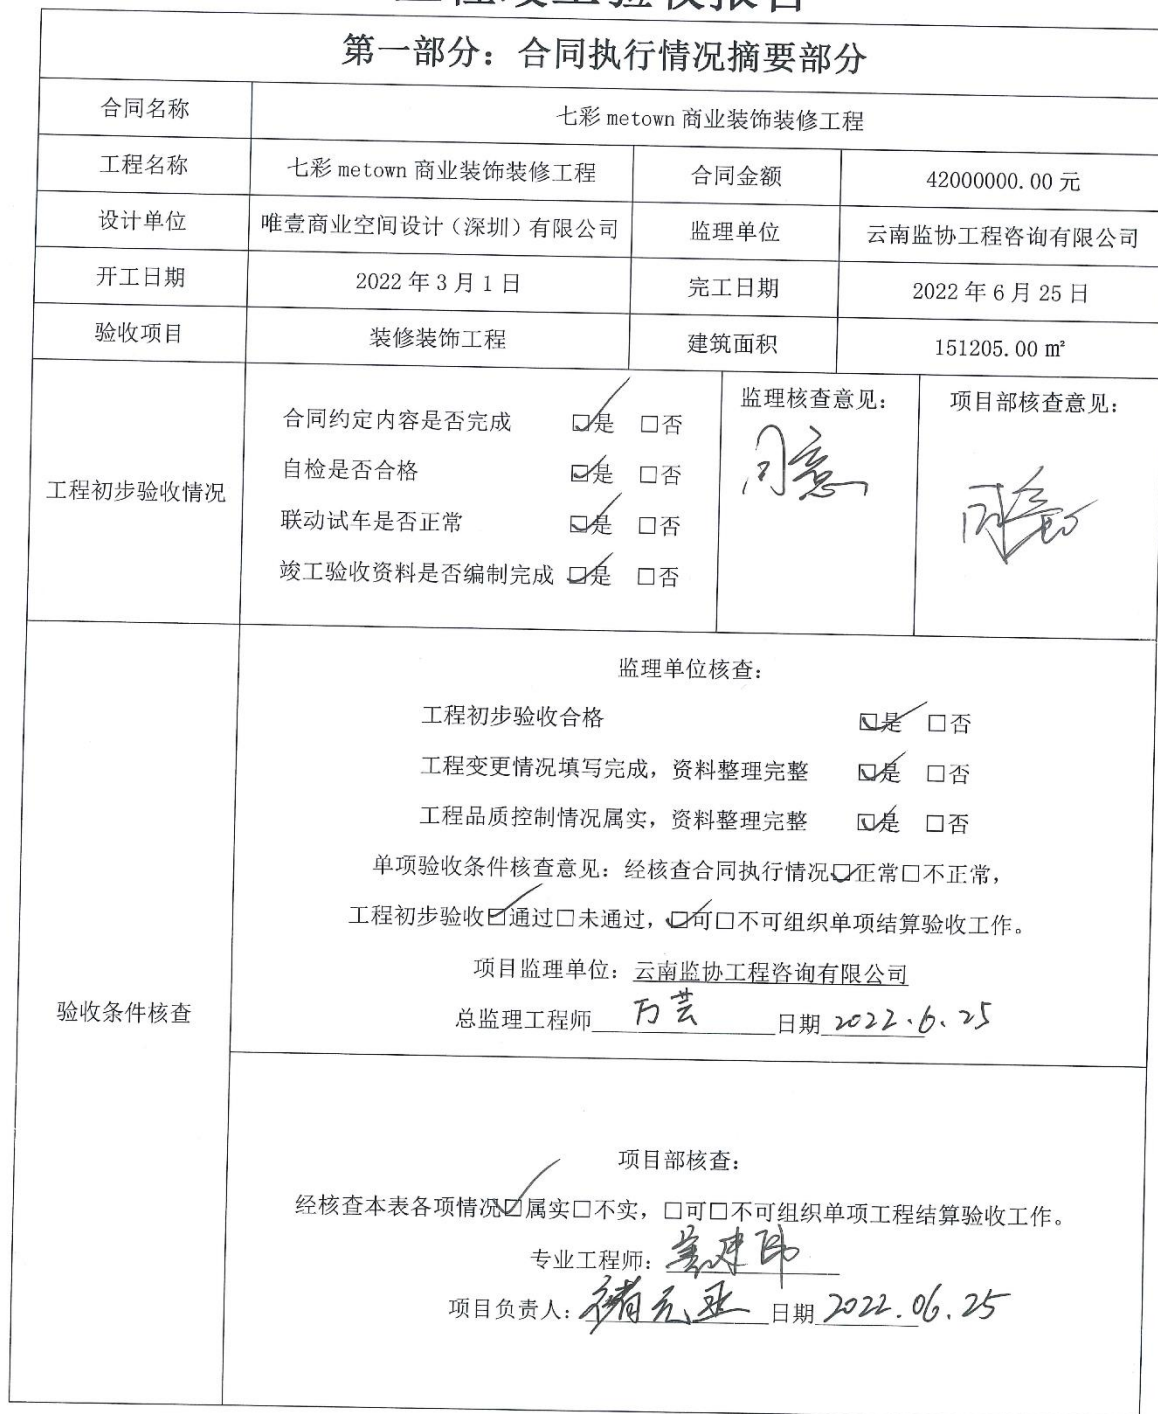 工程竣工验收报告
第一部分：合同执行情况摘要部分
合同名称 七彩 metown 商业装饰装修工程
工程名称 七彩 metown 商业装饰装修工程 合同金额 42000000.00 元
设计单位 唯壹商业空间设计（深圳）有限公司 监理单位 云南监协工程咨询有限公司
开工日期 2022 年 3 月 1 日 完工日期 2022 年 6 月 25 日
验收项目 装修装饰工程 建筑面积 151205.00 ㎡
工程初步验收情况
合同约定内容是否完成 ☑是 □否
自检是否合格 ☑是 □否
联动试车是否正常 ☑是 □否
竣工验收资料是否编制完成 ☑是 □否
监理核查意见：
同意
项目部核查意见：
同意
验收条件核查
监理单位核查：
工程初步验收合格 ☑是 □否
工程变更情况填写完成，资料整理完整 ☑是 □否
工程品质控制情况属实，资料整理完整 ☑是 □否
单项验收条件核查意见：经核查合同执行情况☑正常□不正常，
工程初步验收☑通过□未通过，☑可□不可组织单项结算验收工作。
项目监理单位：云南监协工程咨询有限公司
总监理工程师 万芸 日期 2022.6.25
项目部核查：
经核查本表各项情况☑属实□不实，□可□不可组织单项工程结算验收工作。
专业工程师：
项目负责人：褚元亚 日期 2022.06.25